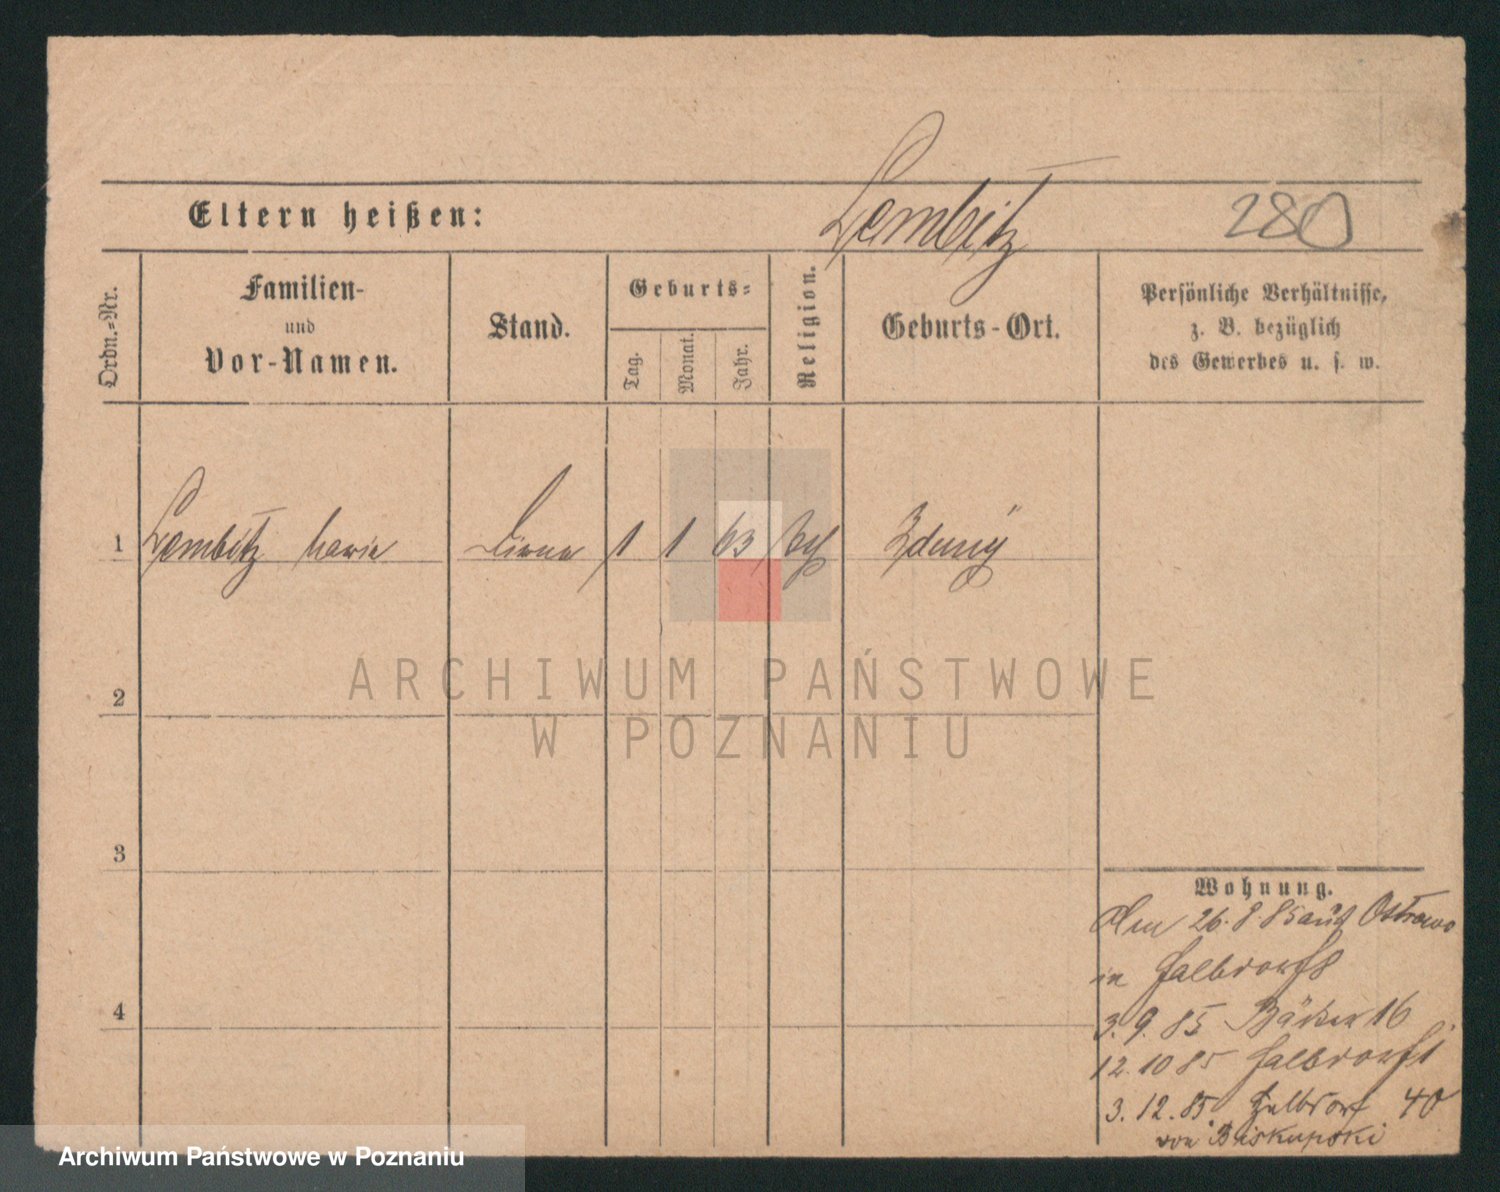 Lembitz
280
Eltern heißen:
Ordn.-Nr.
Familien-
und
Vor-Namen.
Stand.
Geburts-
Tag.
Monat.
Jahr.
Religion.
Geburts-Ort.
Persönliche Verhältnisse,
z. B. bezüglich
des Gewerbes u. s. w.
1 Lembitz Marie 1 1 63 Zduny
2
3
4
ARCHIWUM PAŃSTWOWE
W POZNANIU
Wohnung.
Am 26.8.85 aus Ostrowo
in Halbdorf 8
3.9.85 Bäcker 16
12.10 85 Halbdorf 1
3.12.85. Halbdorf 40
von Biskupski
Archiwum Państwowe w Poznaniu